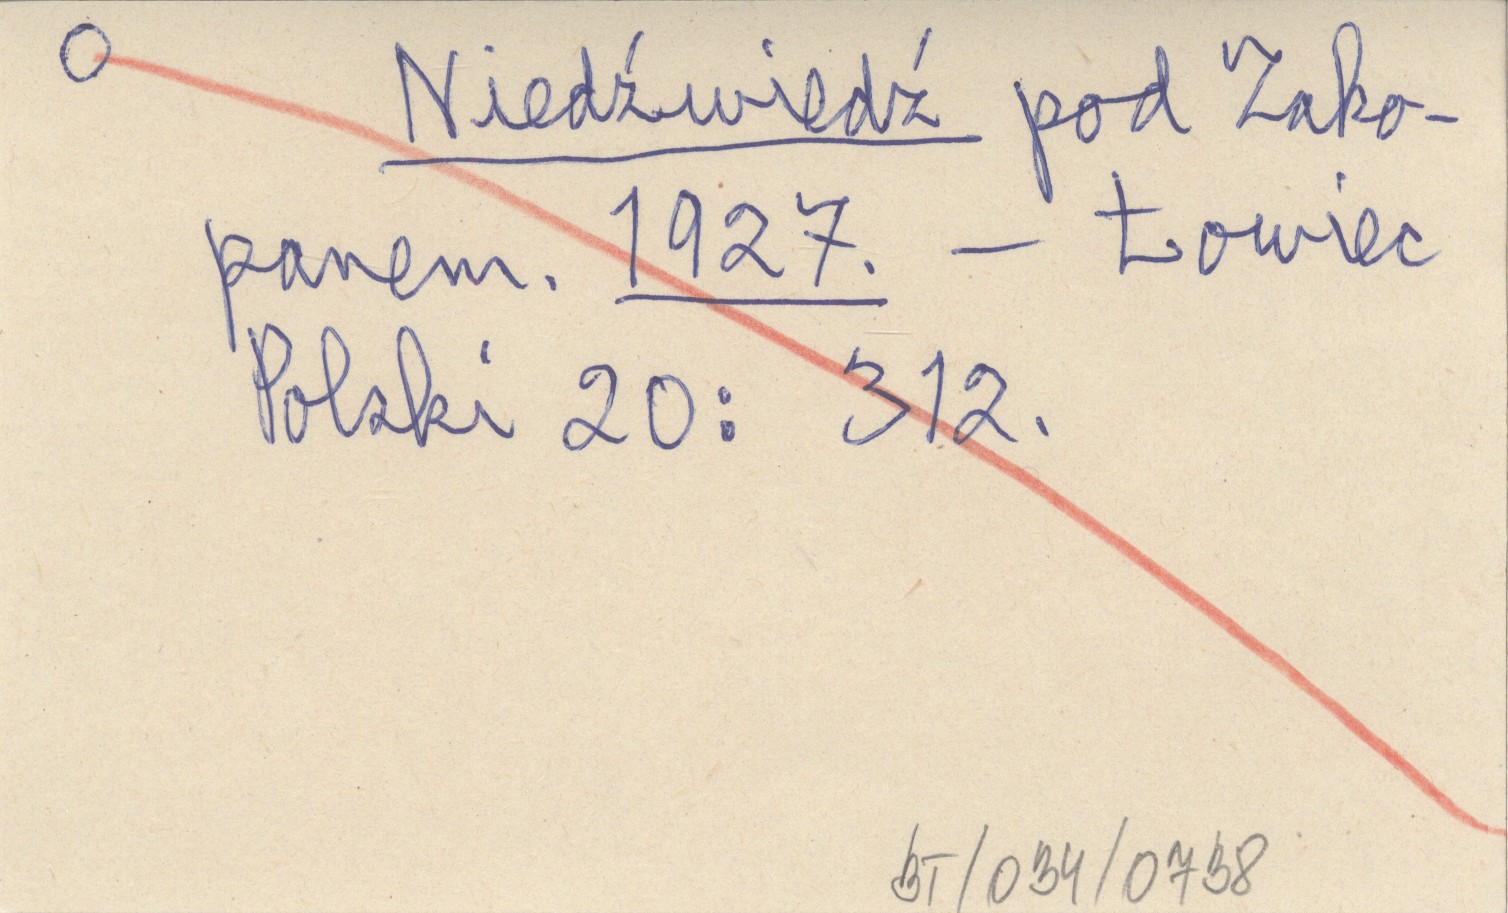 Niedźwiedź pod Zako-
panem. 1927. – Łowiec
Polski 20: 312.
BT/034/0738